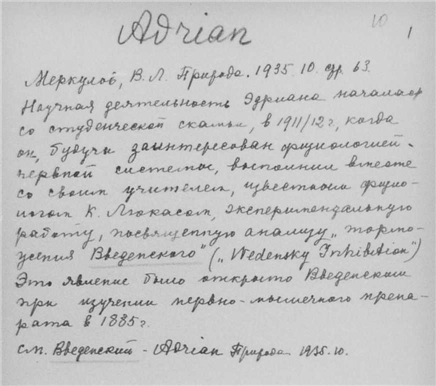 10
1
Adrian
Меркулов, В. Л. Природа. 1935. 10. стр. 63.
Научная деятельность Эдриана началась
со студенческой скамьи, в 1911/12 г, когда
он, будучи заинтересован физиологией
нервной системы, выполнил вместе
со своим учителем, известным физио-
логом К. Люкасом, экспериментальную
работу, посвященную анализу „тормо-
жения Введенского" („Wedensky Inhibition")
Это явление было открыто Введенским
при изучении нервно-мышечного препа-
рата в 1885 г.
см. Введенский - Adrian Природа 1935. 10.